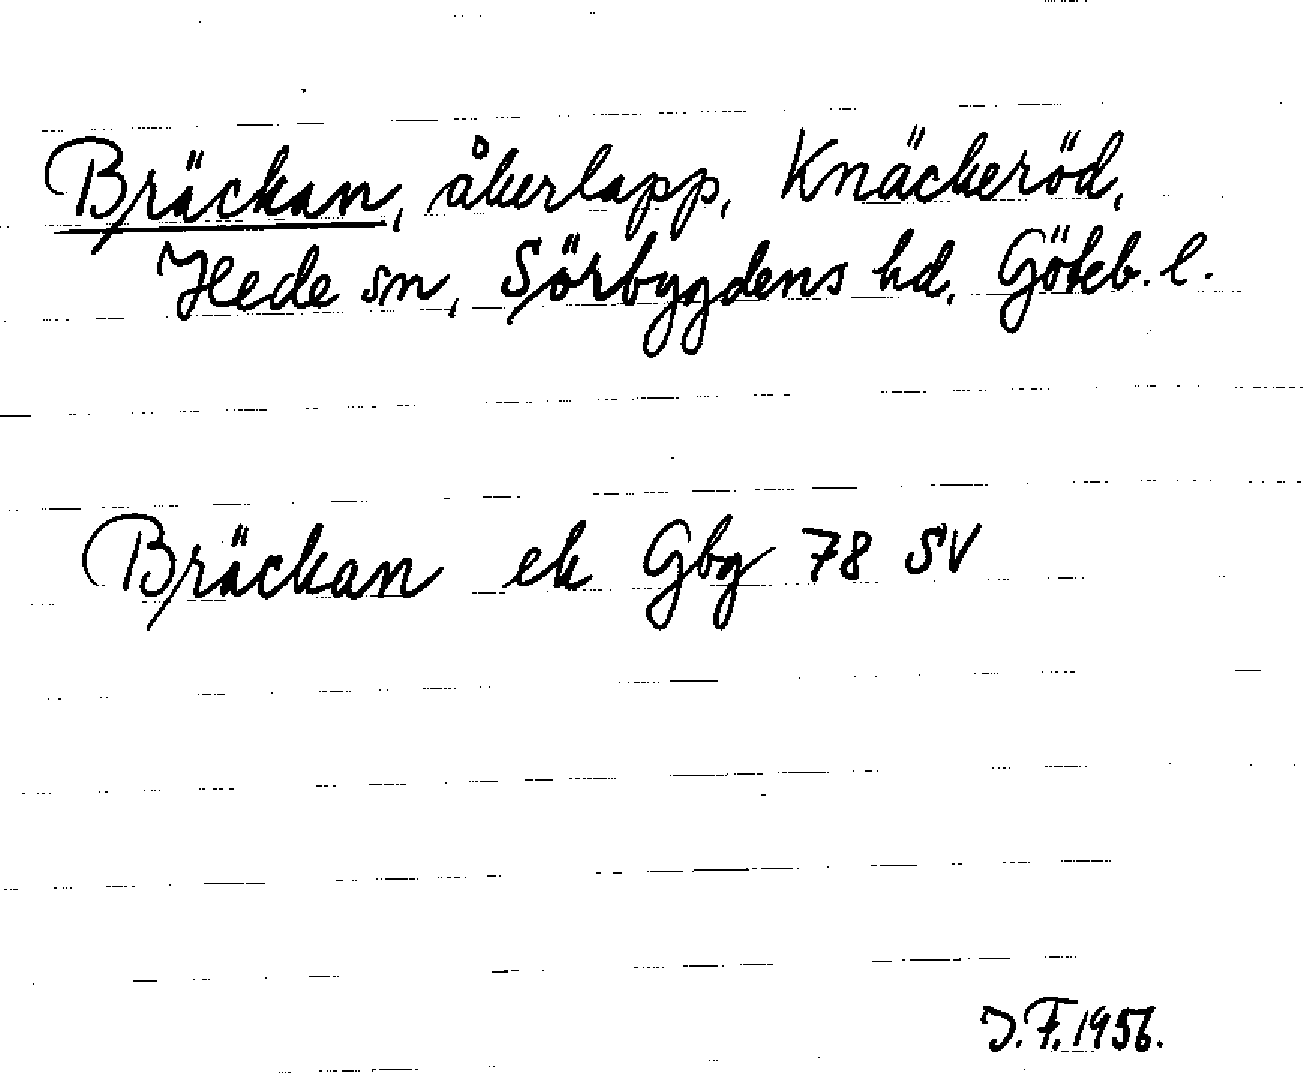 Bräckan, åkerlapp, Knäckeröd,
Hede sn, Sörbygdens hd, Göteb. l.
Bräckan ek Gbg 78 SV
J. F. 1956.